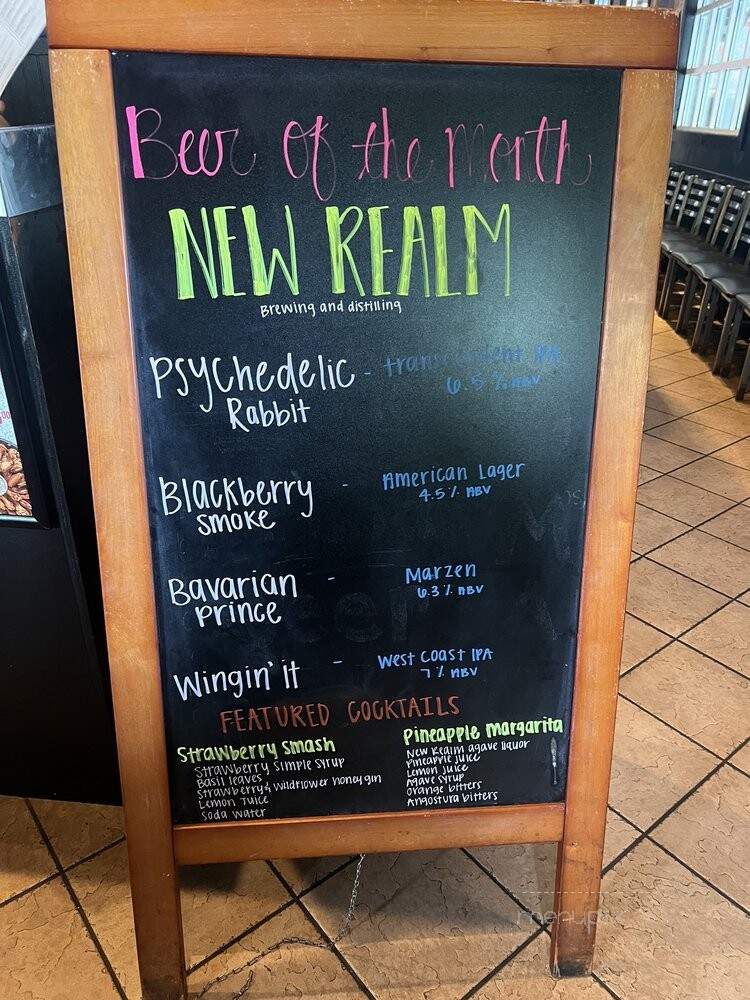 Beer of the Month
NEW REALM
Brewing and distilling
Psychedelic Rabbit - IPA
6.5% ABV
Blackberry Smoke - American Lager
4.5% ABV
Bavarian Prince - Marzen
6.3% ABV
Wingin' it - West Coast IPA
7% ABV
FEATURED COCKTAILS
Strawberry Smash
Strawberry Simple Syrup
Basil leaves
Strawberry & wildflower honey gin
Lemon Juice
Soda Water
Pineapple Margarita
New Realm agave liquor
Pineapple Juice
Lemon Juice
Agave Syrup
Orange bitters
Angostura bitters